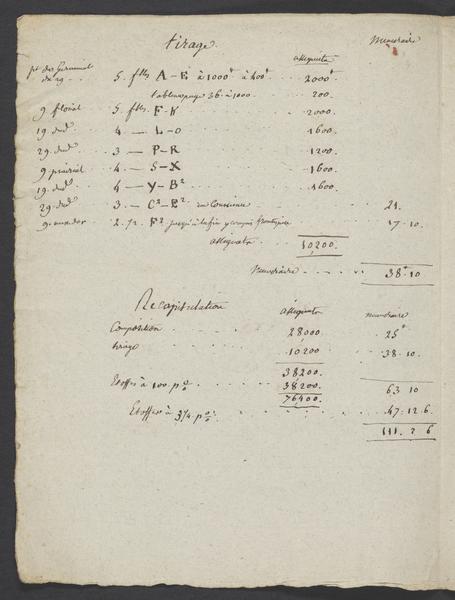 tirage. numéraire
assignats
p.r du Germinal 
29 .. 5. flles A – E à 1000# à 400# .. 2000#
tableau page 36. à 1000 .. 200.
9. floréal .. 5. flles F-K .. 2000.
19. dud. .. 4. — L-O .. 1600.
29. dud. .. 3 — P-R .. 1200.
9 prairial .. 4. — S-X .. 1600.
19. dud. .. 4 — Y-B² .. 1600.
29. dud. .. 3. — C²-E². en Conscience .. 21.
9. messidor .. 2. 1/2. F² jusqu'à la fin y compris frontispice .. 17. 10.
assignats .. 10,200.
Numéraire .. 38# 10
Recapitulation assignats numéraire
Composition .. 28000. .. 25#
tirage .. 10200 .. 38. 10.
38200.
Etoffes à 100. p% .. 38200. .. 63 10
76400.
Etoffes à 3/4. p%. .. 47. 12. 6
111. 2 6